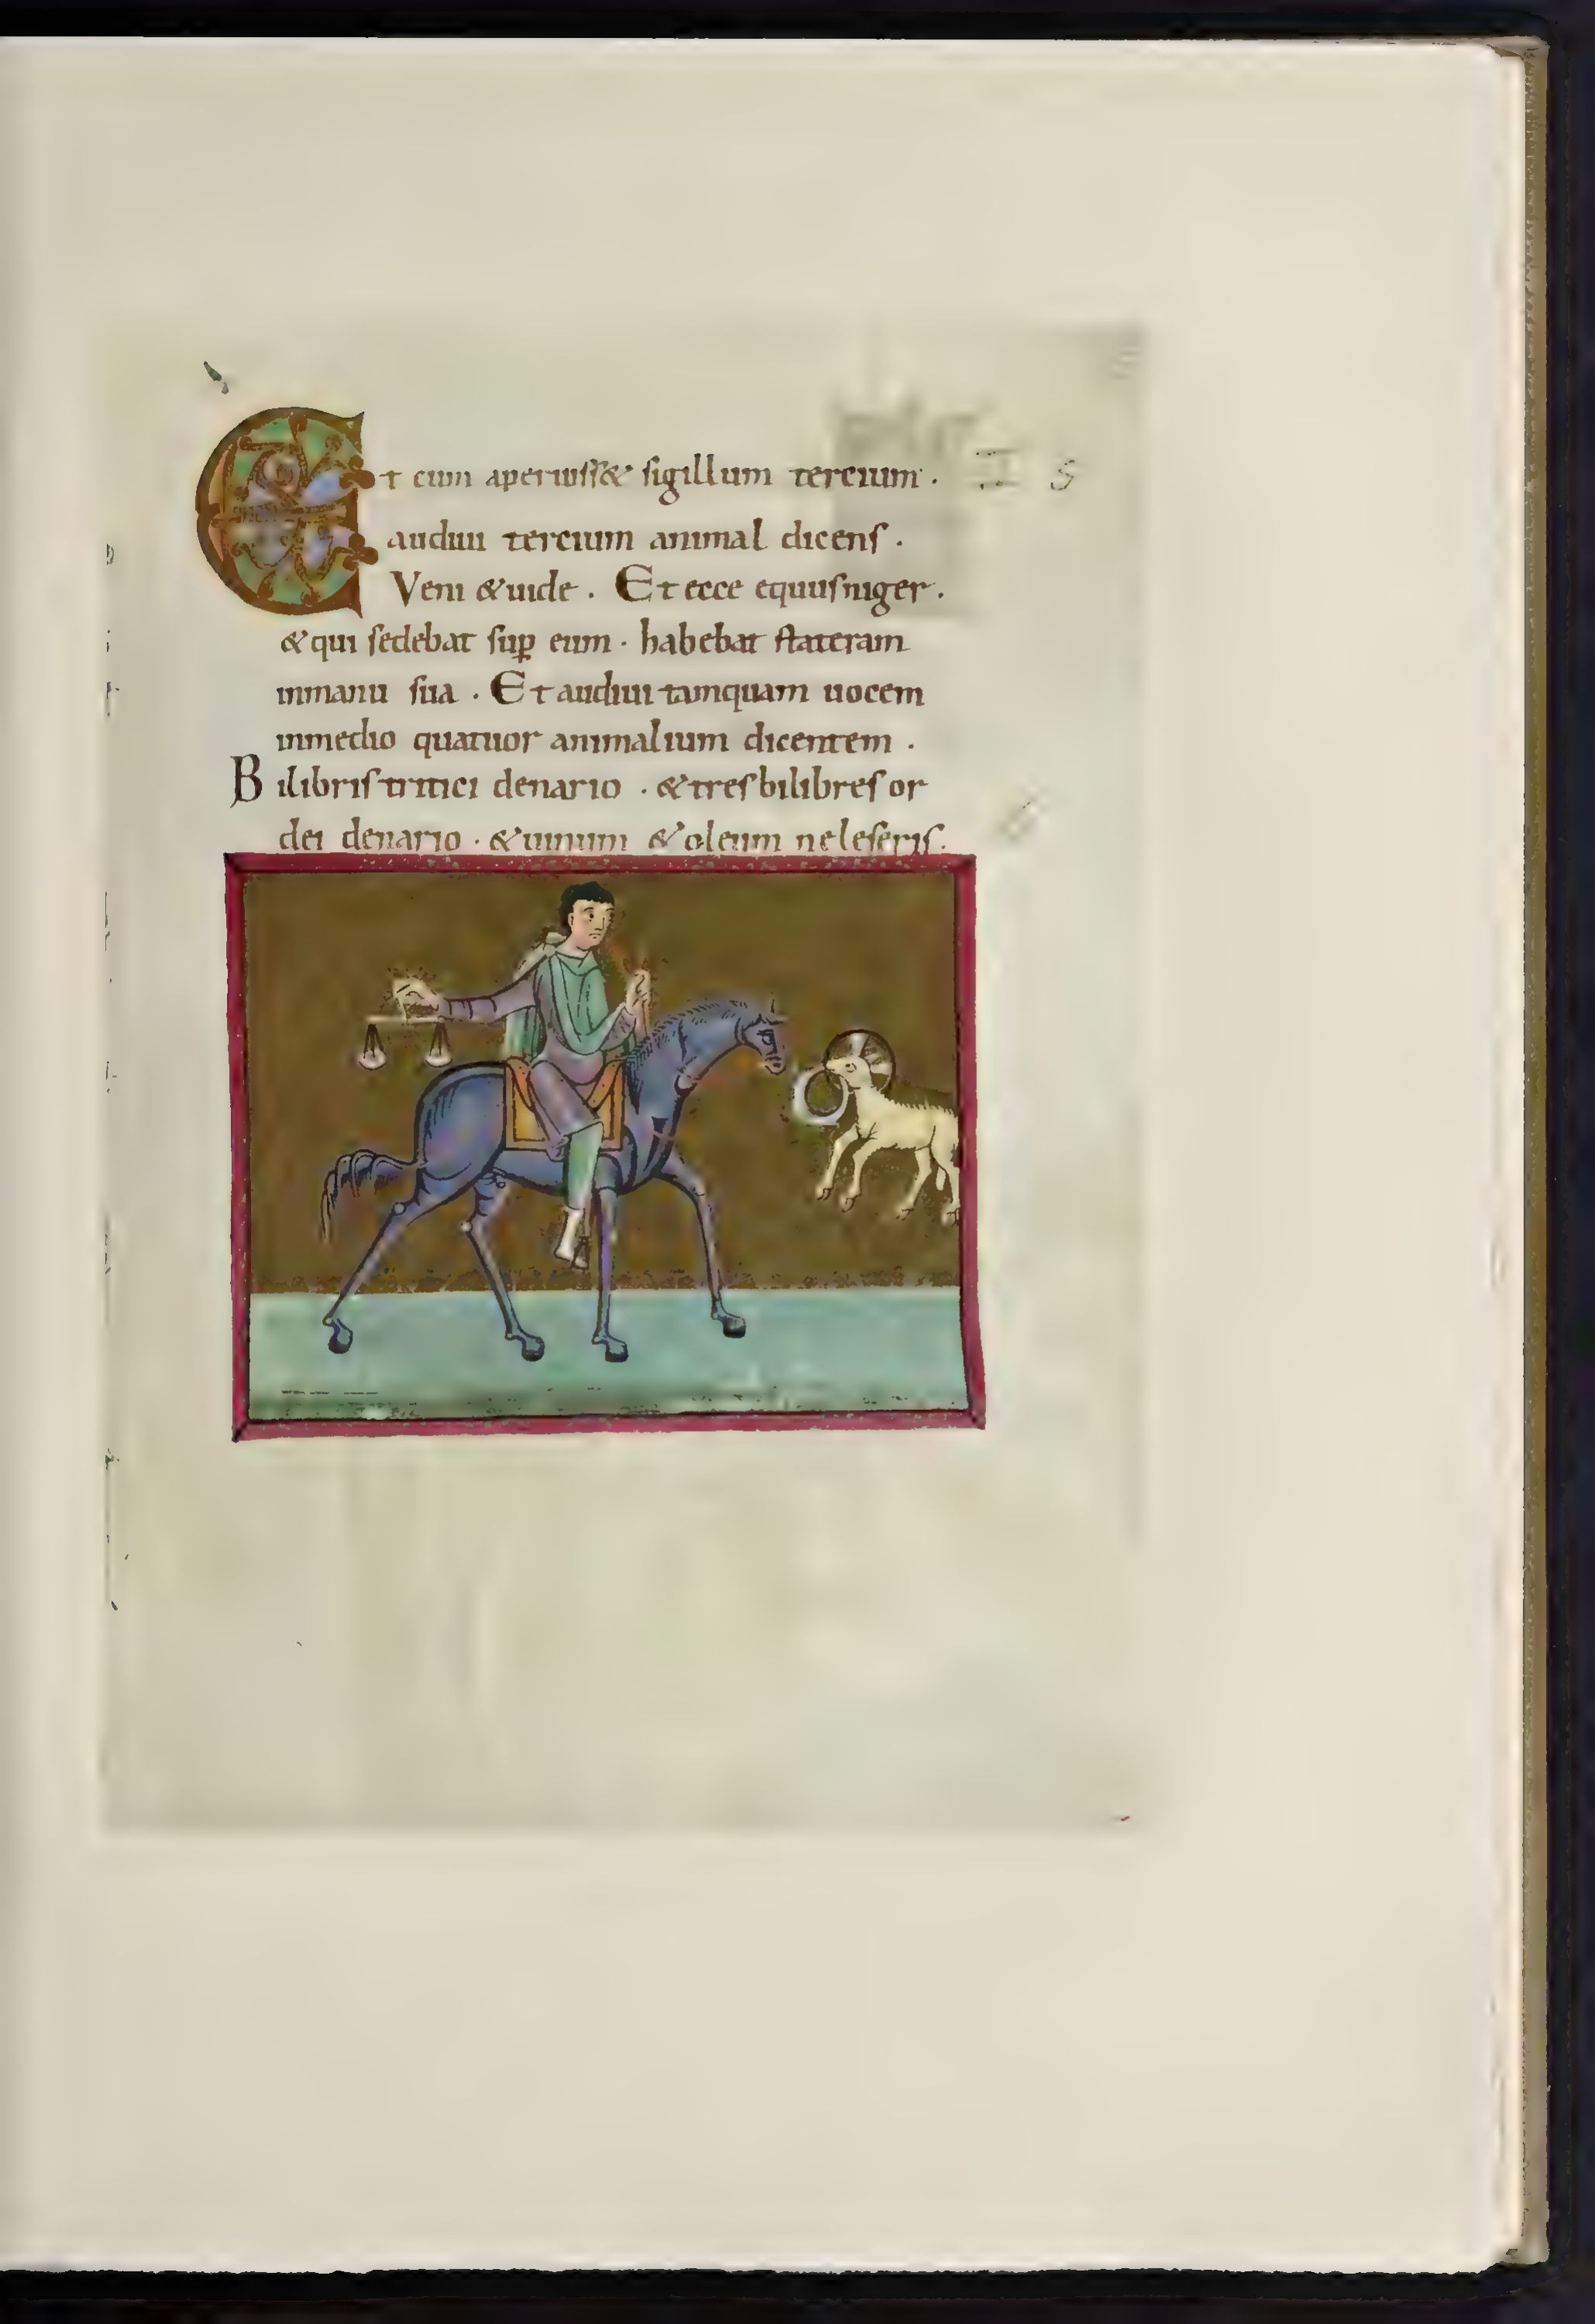 Et cum aperuiſſ& ſigillum tercium .
audiui tercium animal dicenſ .
Veni &uide . Et ecce equuſniger .
&qui ſedebat ſuꝑ eum . habebat ſtateram
inmanu ſua . Et audiui tamquam uocem
inmedio quatuor animalium dicentem .
Bilibriſ tritici denario . &treſ bilibreſ or
dei denario . &uinum &oleum neleſeriſ .